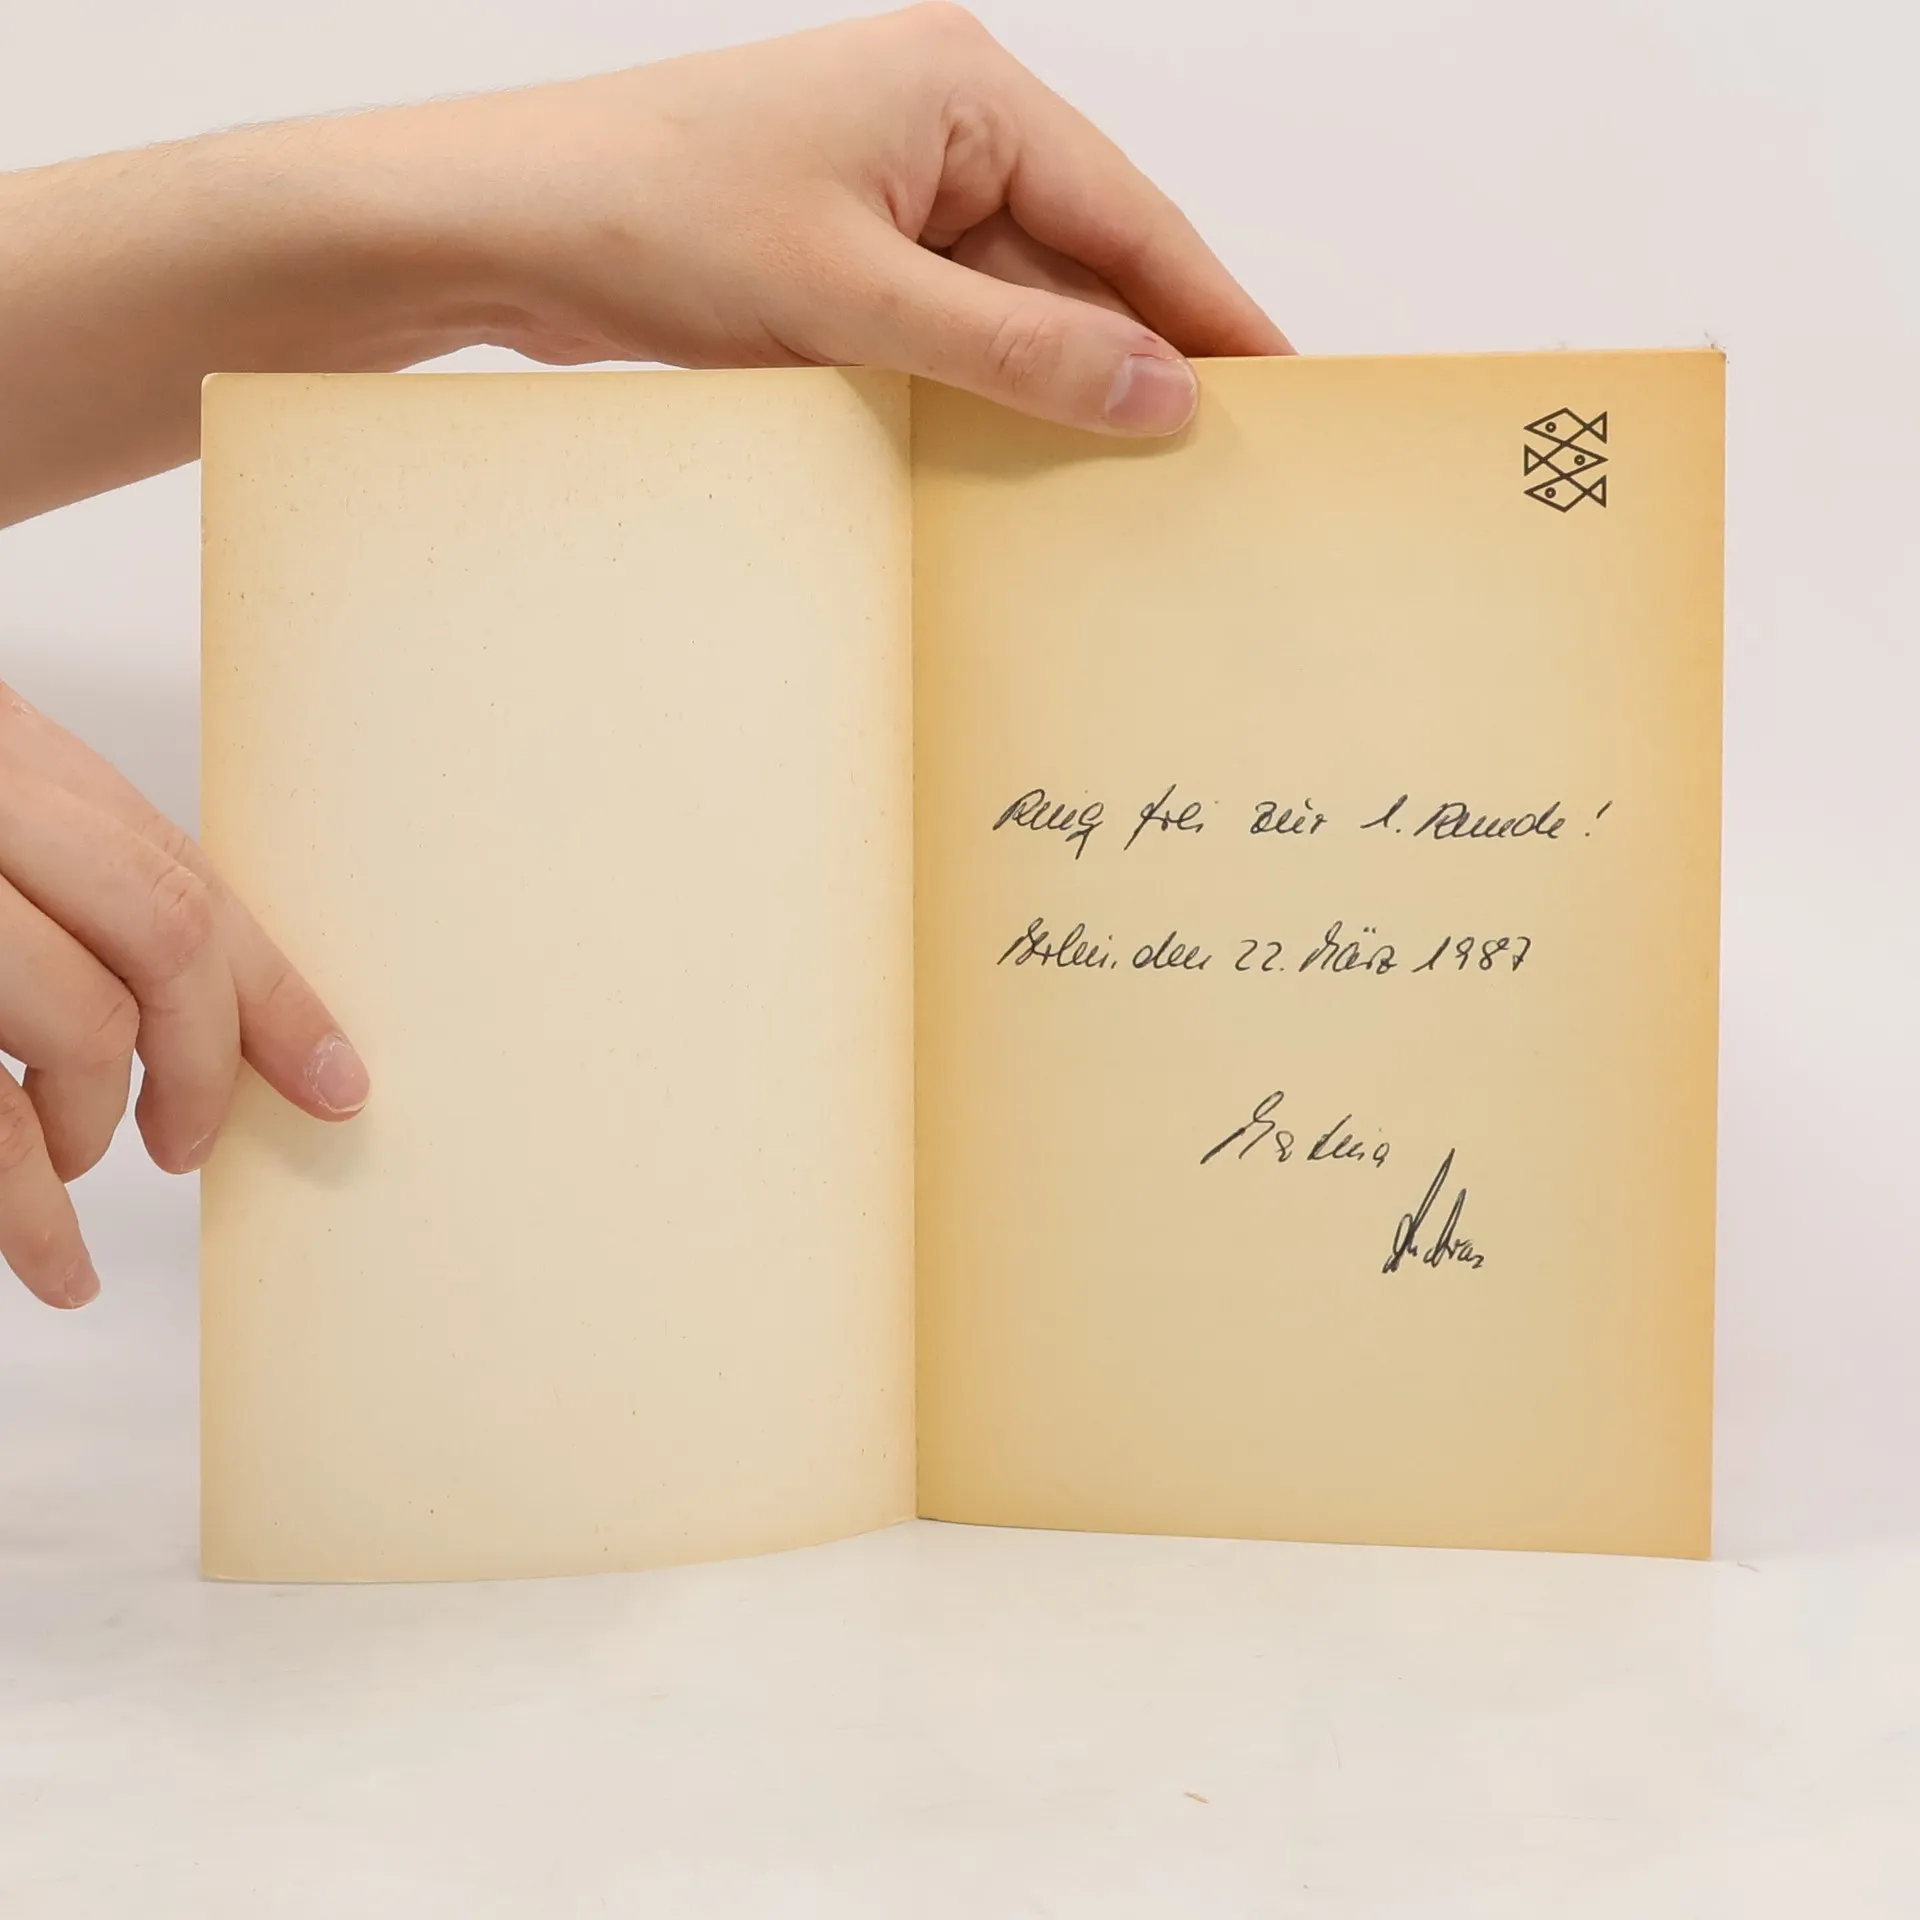 Ring frei zur 1. Runde!
Berlin, den 22. März 1987
Martina
Andreas